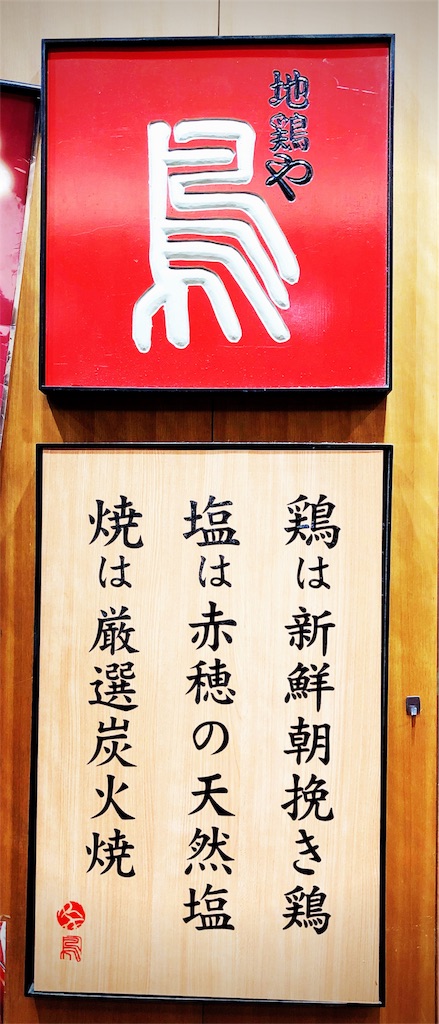 地鶏や
鳥
鶏は新鮮朝挽き鶏
塩は赤穂の天然塩
焼は厳選炭火焼